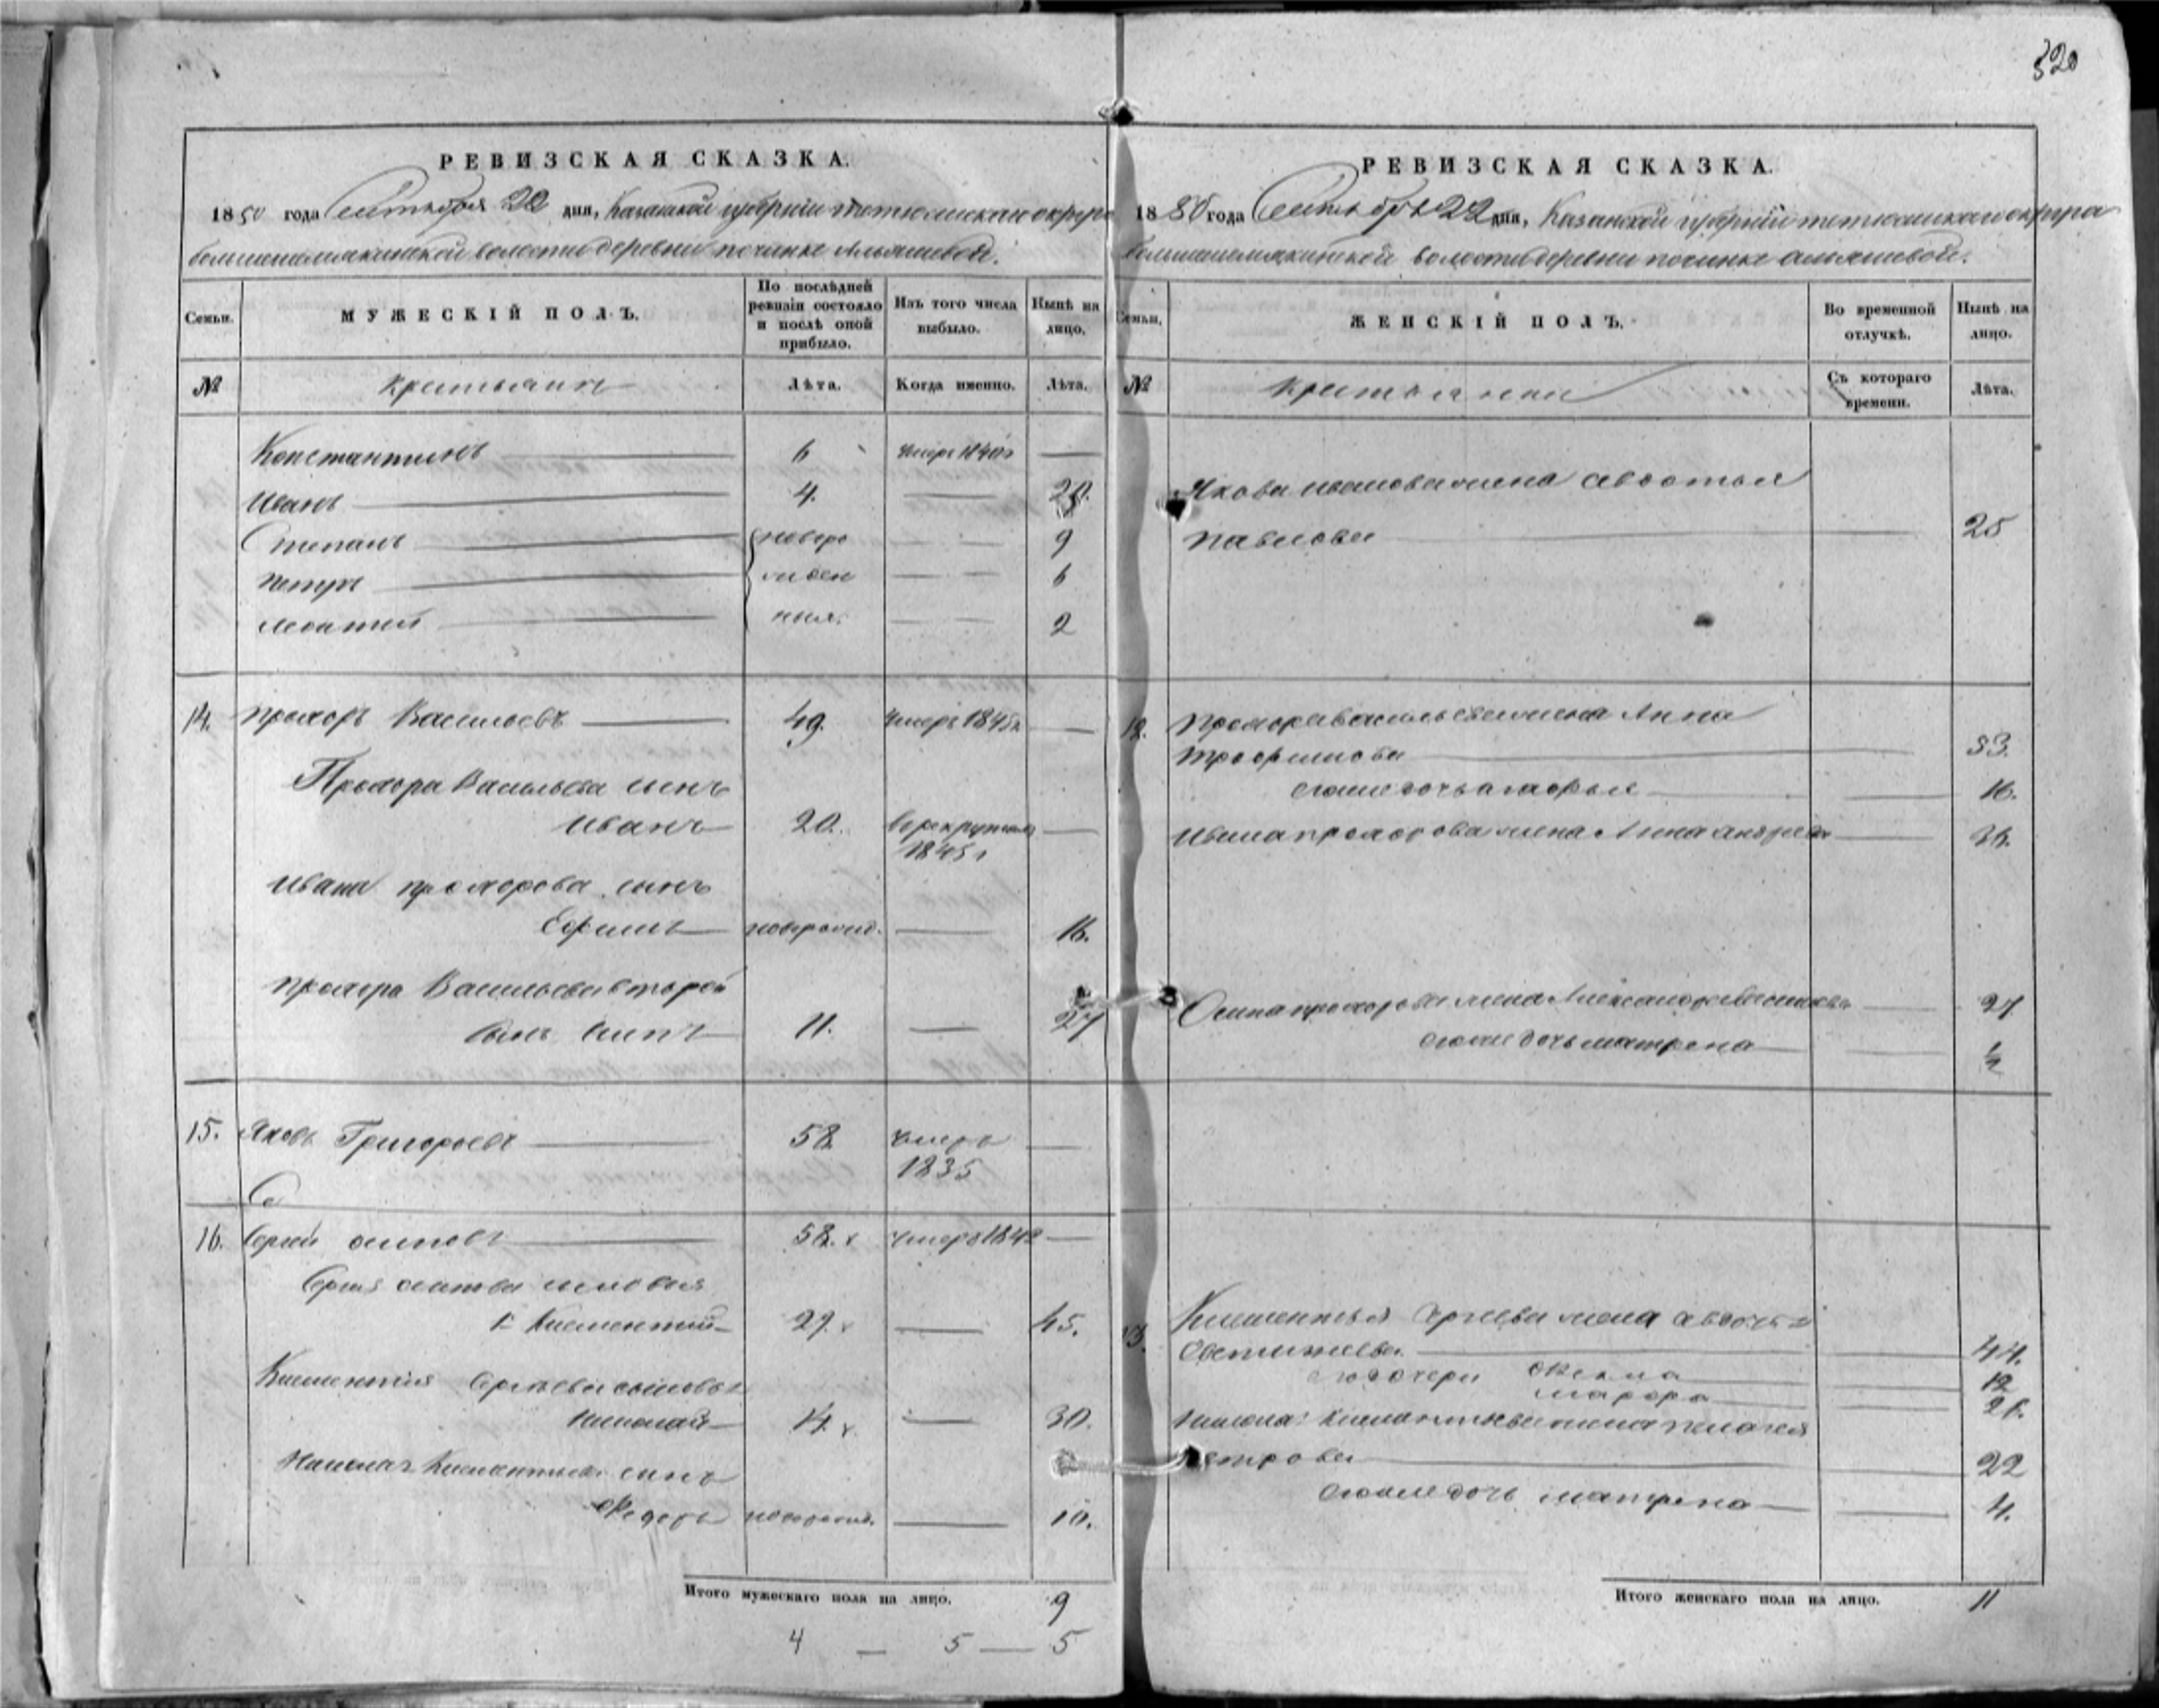 320
РЕВИЗСКАЯ СКАЗКА.
1850 года Сентября 22 дня, Казанской губернии тетюшскаго округа
большешемякинской волости деревни починке Альяшевой.
Семьи.
МУЖЕСКІЙ ПОЛЪ.
По послѣдней ревизіи состояло и послѣ оной прибыло.
Изъ того числа выбыло.
Нынѣ на лицо.
№
крестьянъ
Лѣта.
Когда именно.
Лѣта.
Константинъ 6 умеръ 1840г
Иванъ 4. 20.
Степанъ новоро 9
Петръ жден 6
Леонтей ныя. 2
14. Прохоръ Васильевъ 49. умеръ 1845г
Прохора Васильева сынъ
Иванъ 20. в рекрутахъ
1845г
Ивана прохорова сынъ
Ефимъ новорожд. 16.
Прохора Васильева второй
сынъ Осипъ 11. 27
15. Яковъ Григорьевъ 58 умеръ
1835
Се
16. Сергей осиповъ 58. умеръ 1842
Сергея осипова сыновья
1й Клементий 29. 45.
Клементия Сергеева сыновья
Николай 14. 30.
Николая Клементьева сынъ
Федоръ новорожд. 10.
Итого мужескаго пола на лицо. 9
4 — 5 — 5
РЕВИЗСКАЯ СКАЗКА.
1850 года Сентября 22 дня, Казанской губернии тетюшскаго округа
большешемякинской волости деревни починке альяшевой.
Семьи.
ЖЕНСКІЙ ПОЛЪ.
Во временной отлучкѣ.
Нынѣ на лицо.
№
крестьянки
Съ котораго времени.
Лѣта.
Якова иванова жена авдотья
павлова 25
Прохора васильева жена Анна
трофимова 53.
его же дочь 16.
Ивана прохорова жена Анна андреева 36.
Осипа прохорова жена 27
его же дочь матрена ½
13. Клементья Сергеева жена авдотья
44.
его дочери Фекла 12
Николая клементьева жена пелагея
петрова 22
его же дочь матрена 4.
Итого женскаго пола на лицо. 11